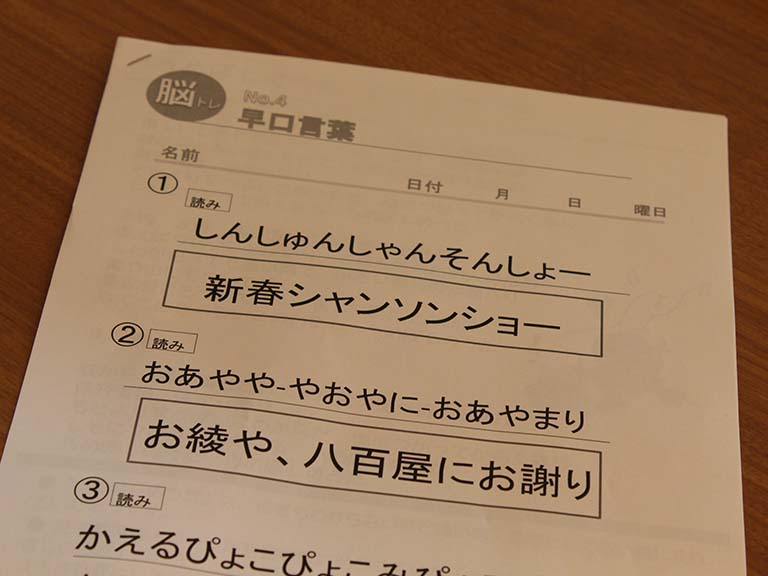 脳トレ
No.4
早口言葉
名前 日付 月 日 曜日
① 読み
しんしゅんしゃんそんしょー
新春シャンソンショー
② 読み
おあやや-やおやに-おあやまり
お綾や、八百屋にお謝り
③ 読み
かえるぴょこぴょこみぴ